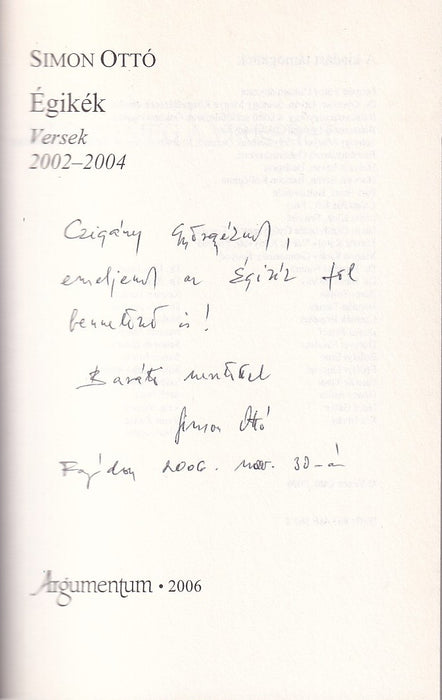 SIMON OTTÓ
Égikék
Versek
2002–2004
Czigány Györgyéknek,
emeljen az Égikék fel
bennetöket is!
Baráti
Simon Ottó
2006. nov. 30-á
Argumentum • 2006